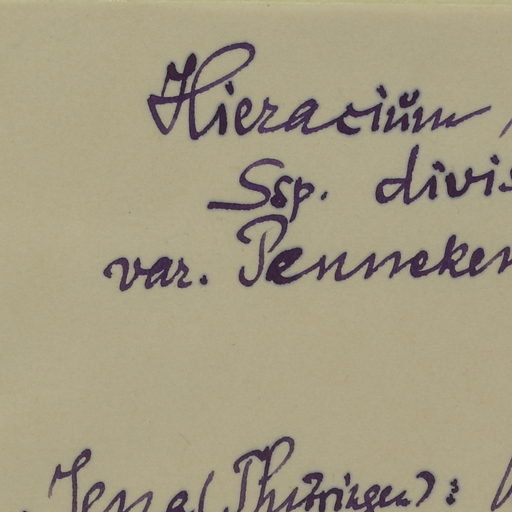 Hieracium
Ssp. divis
var. Penneken
Jena (Thüringen):